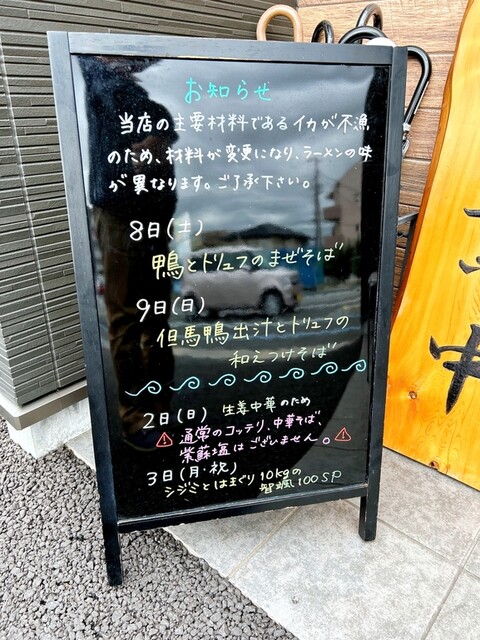 お知らせ
当店の主要材料であるイカが不漁
のため、材料が変更になり、ラーメンの味
が異なります。ご了承下さい。
8日(土)
鴨とトリュフのまぜそば
9日(日)
但馬鴨出汁とトリュフの
和えつけそば
2日(日) 生姜中華のため
通常のコッテリ、中華そば、
紫蘇塩はございません。
3日(月・祝)
シジミとはまぐり10kgの
智颯100SP
中